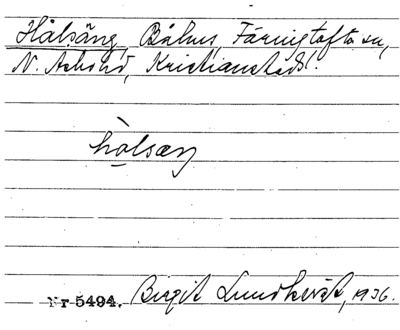 Hålsäng, Bålus, Färingtofta sn,
N. Åsbo hd, Kristianstads l.
hòlsæŋ
Nr 5494. Birgit Lundkvist, 1936.